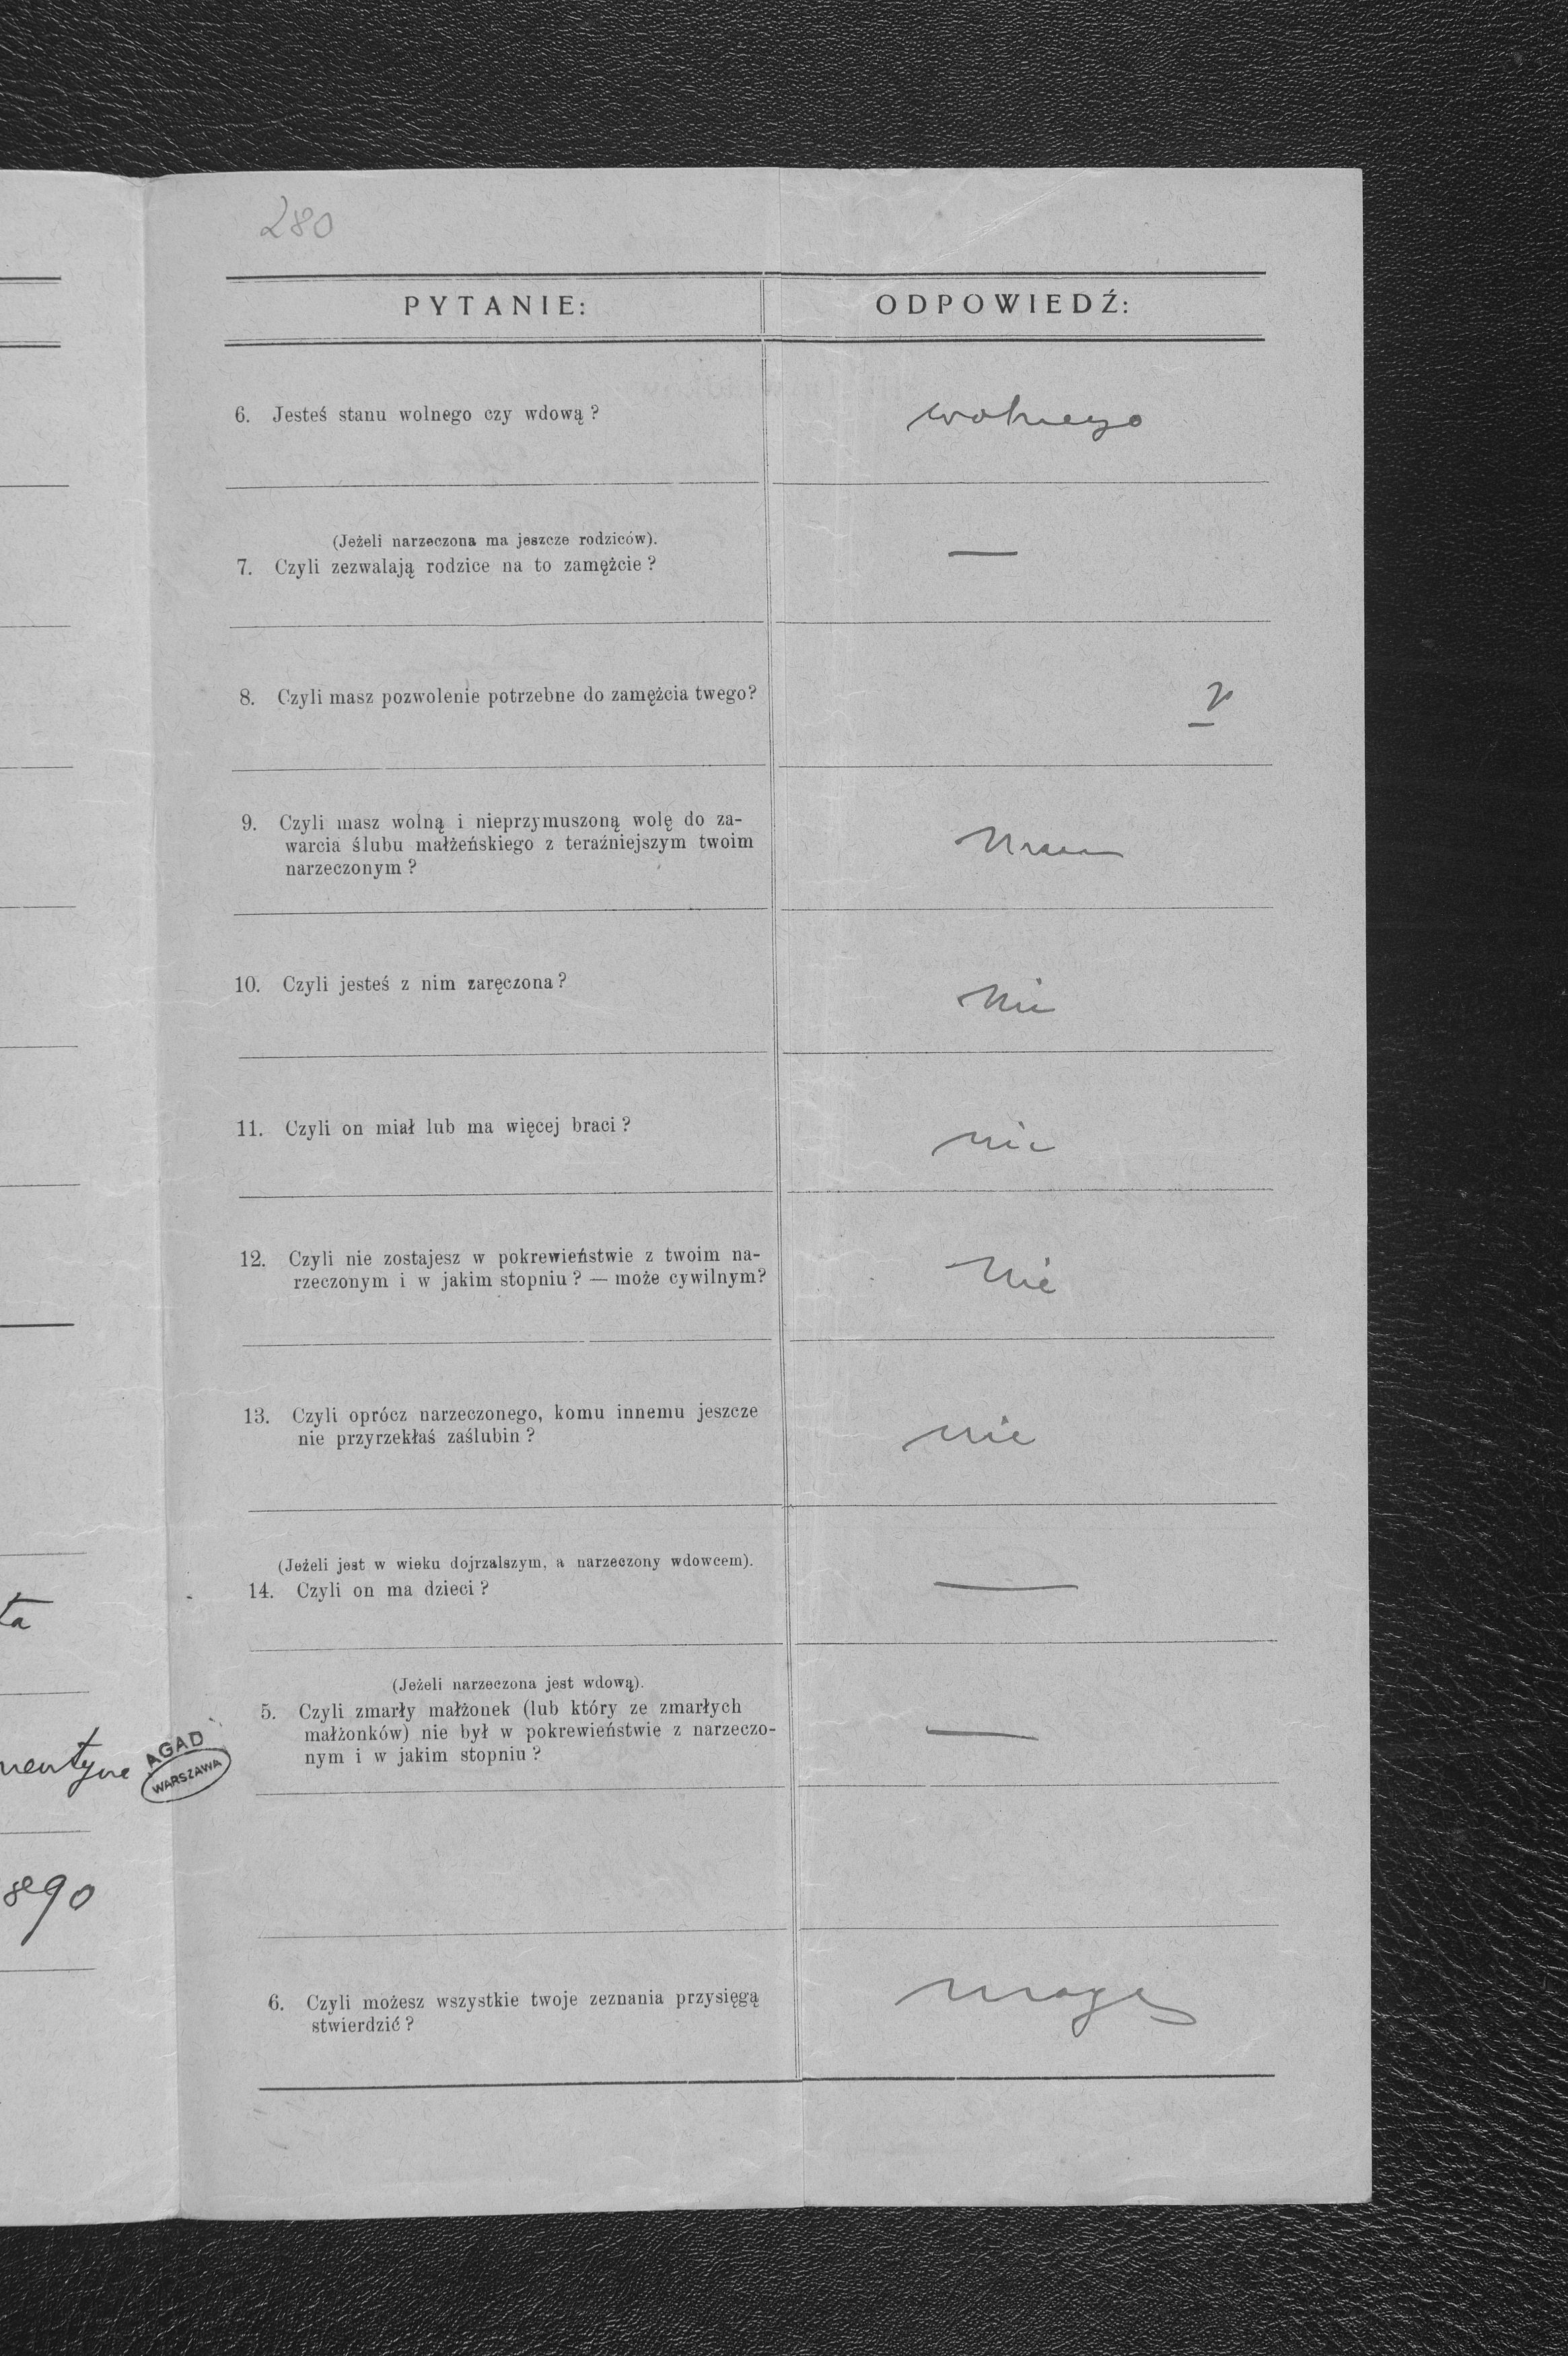 280
PYTANIE:
ODPOWIEDŹ:
6. Jesteś stanu wolnego czy wdową ?
wolnego
(Jeżeli narzeczona ma jeszcze rodziców).
7. Czyli zezwalają rodzice na to zamężcie ?
—
8. Czyli masz pozwolenie potrzebne do zamężcia twego?
9. Czyli masz wolną i nieprzymuszoną wolę do za-
warcia ślubu małżeńskiego z teraźniejszym twoim
narzeczonym ?
Mam
10. Czyli jesteś z nim zaręczona ?
Nie
11. Czyli on miał lub ma więcej braci ?
nie
12. Czyli nie zostajesz w pokrewieństwie z twoim na-
rzeczonym i w jakim stopniu ? — może cywilnym?
Nie
13. Czyli oprócz narzeczonego, komu innemu jeszcze
nie przyrzekłaś zaślubin ?
nie
(Jeżeli jest w wieku dojrzalszym, a narzeczony wdowcem).
14. Czyli on ma dzieci ?
—
(Jeżeli narzeczona jest wdową).
5. Czyli zmarły małżonek (lub który ze zmarłych
małżonków) nie był w pokrewieństwie z narzeczo-
nym i w jakim stopniu ?
—
6. Czyli możesz wszystkie twoje zeznania przysięgą
stwierdzić ?
mogę
ta
mentyne
AGAD
WARSZAWA
890